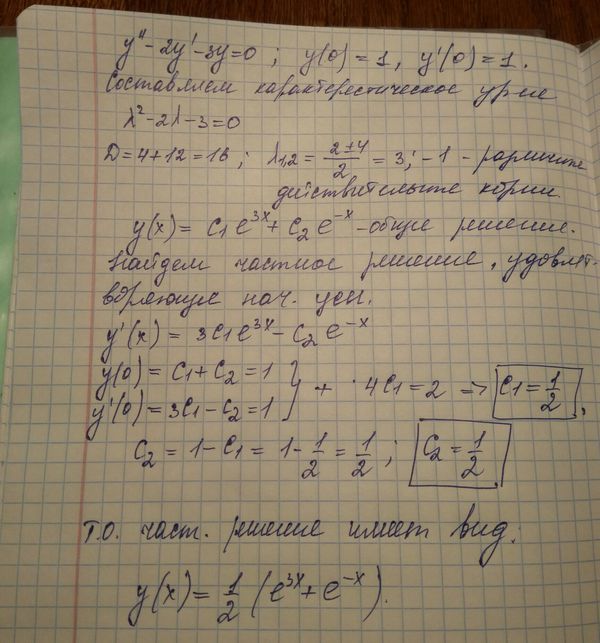 y'' - 2y' - 3y = 0 ; y(0) = 1, y'(0) = 1.
Составляем характерестическое ур-ние
λ² - 2λ - 3 = 0
D = 4 + 12 = 16 ; λ₁,₂ = (2 ± 4)/2 = 3; -1 - различные
действительные корни.
y(x) = C₁e^{3x} + C₂e^{-x} - общее решение.
Найдем частное решение, удовлет-
воряющее нач. усл.
y'(x) = 3C₁e^{3x} - C₂e^{-x}
y(0) = C₁ + C₂ = 1
y'(0) = 3C₁ - C₂ = 1 } + 4C₁ = 2 => C₁ = 1/2,
C₂ = 1 - C₁ = 1 - 1/2 = 1/2 ; C₂ = 1/2.
Т.О. част. решение имеет вид:
y(x) = 1/2 (e^{3x} + e^{-x}).